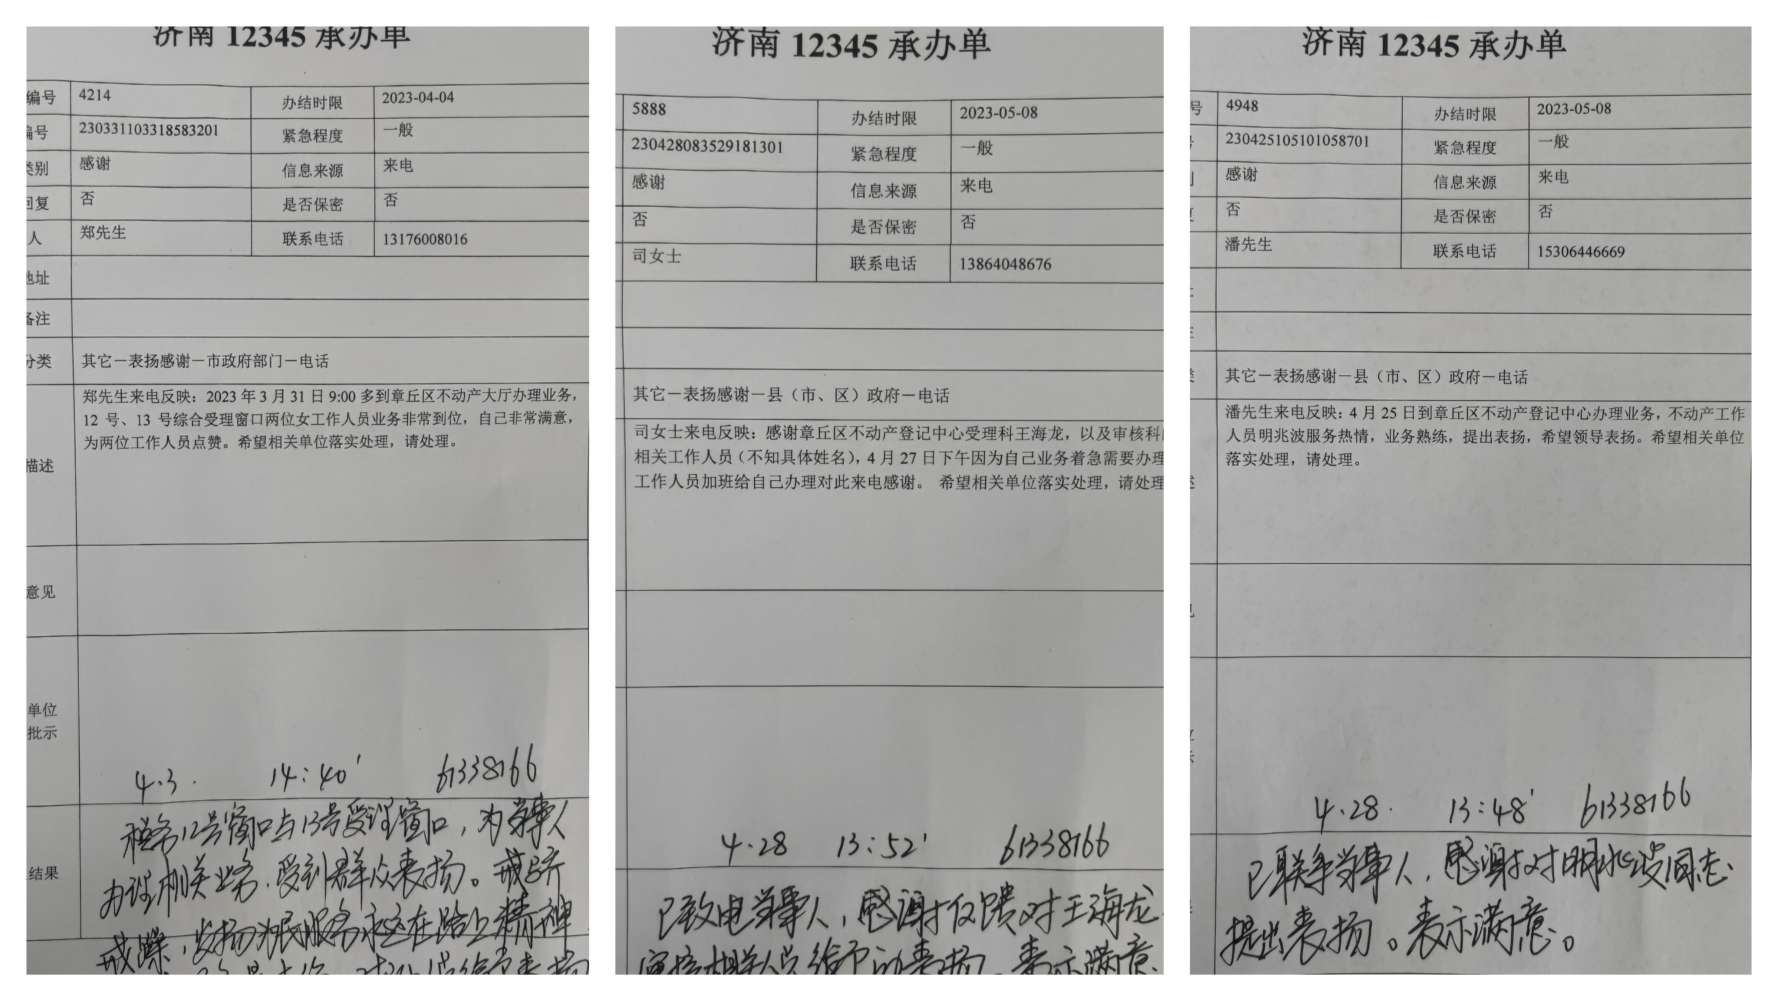 济南 12345 承办单
编号 4214 办结时限 2023-04-04
编号 230331103318583201 紧急程度 一般
类别 感谢 信息来源 来电
回复 否 是否保密 否
人 郑先生 联系电话 13176008016
地址
备注
分类 其它－表扬感谢－市政府部门－电话
描述
郑先生来电反映：2023 年 3 月 31 日 9:00 多到章丘区不动产大厅办理业务，
12 号、13 号综合受理窗口两位女工作人员业务非常到位，自己非常满意，
为两位工作人员点赞。希望相关单位落实处理，请处理。
意见
单位
批示
4.3. 14:40' 61338166
结果
税务12号窗口与13号受理窗口，为当事人
办理相关业务，受到群众表扬。戒骄
戒躁，发扬为民服务永远在路上精神
济南 12345 承办单
5888 办结时限 2023-05-08
230428083529181301 紧急程度 一般
感谢 信息来源 来电
否 是否保密 否
司女士 联系电话 13864048676
其它－表扬感谢－县（市、区）政府－电话
司女士来电反映：感谢章丘区不动产登记中心受理科王海龙，以及审核科
相关工作人员（不知具体姓名），4 月 27 日下午因为自己业务着急需要办理
工作人员加班给自己办理对此来电感谢。 希望相关单位落实处理，请处理
4.28 13:52' 61338166
已致电当事人，感谢反馈对王海龙
表示满意
济南 12345 承办单
号 4948 办结时限 2023-05-08
230425105101058701 紧急程度 一般
感谢 信息来源 来电
否 是否保密 否
潘先生 联系电话 15306446669
其它－表扬感谢－县（市、区）政府－电话
潘先生来电反映：4 月 25 日到章丘区不动产登记中心办理业务，不动产工作
人员明兆波服务热情，业务熟练，提出表扬，希望领导表扬。希望相关单位
落实处理，请处理。
4.28. 13:48' 61338166
已联系当事人，感谢对明兆波同志
提出表扬。表示满意。